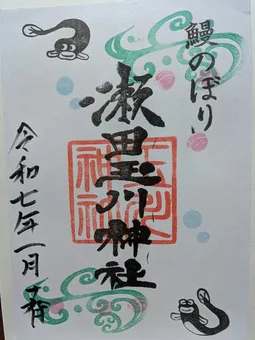 鰻のぼり
瀬田玉川神社
令和七年一月